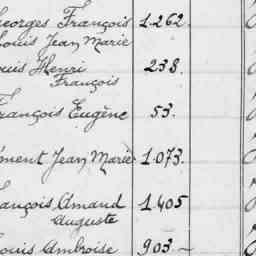 Georges François 1.262.
Louis Jean Marie
Louis Henri 238.
François
François Eugène 53.
Jean Marie 1.073.
François Amand 1405
Auguste
Louis Ambroise 903 —